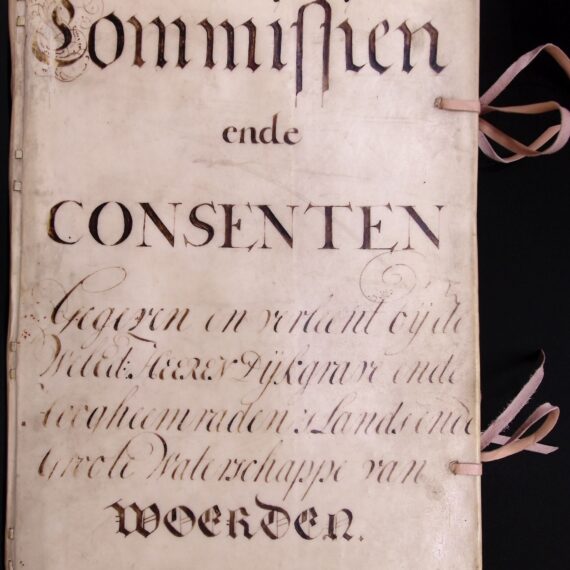 Commissien
ende
CONSENTEN
Gegeven en verleent bij de
Weled: HEEREN Dijkgrave ende
Hoogheemraden 's Lands ende
Groote Waterschappe van
WOERDEN.